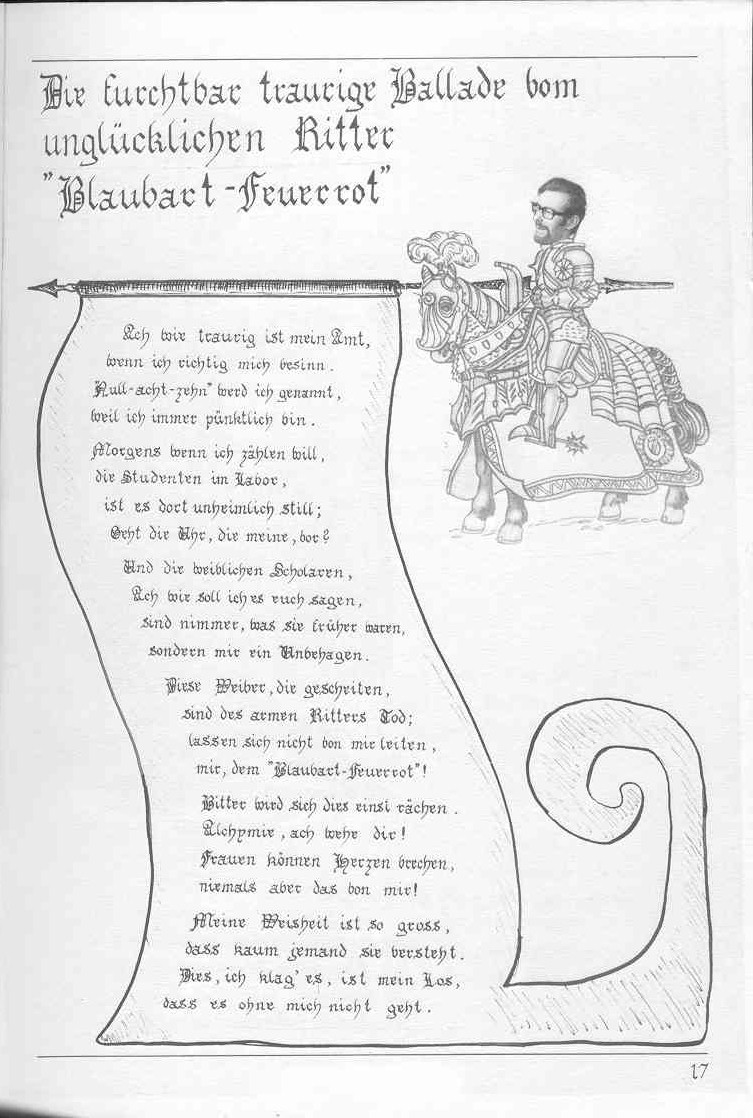 Die furchtbar traurige Ballade vom
unglücklichen Ritter
"Blaubart-Feuerrot"
Ach wie traurig ist mein Amt,
wenn ich richtig mich besinn.
Null-acht-zehn" werd ich genannt,
weil ich immer pünktlich bin.
Morgens wenn ich zählen will,
die Studenten im Labor,
ist es dort unheimlich still;
Geht die Uhr, die meine, vor?
Und die weiblichen Scholaren,
Ach wie soll ich es euch sagen,
sind nimmer, was sie früher waren,
sondern mir ein Unbehagen.
Diese Weiber, die gescheiten,
sind des armen Ritters Tod;
lassen sich nicht von mir leiten,
mir, dem "Blaubart-Feuerrot"!
Bitter wird sich dies einst rächen.
Alchymie, ach wehe dir!
Frauen können Herzen brechen,
niemals aber das von mir!
Meine Weisheit ist so gross,
dass kaum jemand sie versteht.
Dies, ich klag' es, ist mein Los,
dass es ohne mich nicht geht.
17